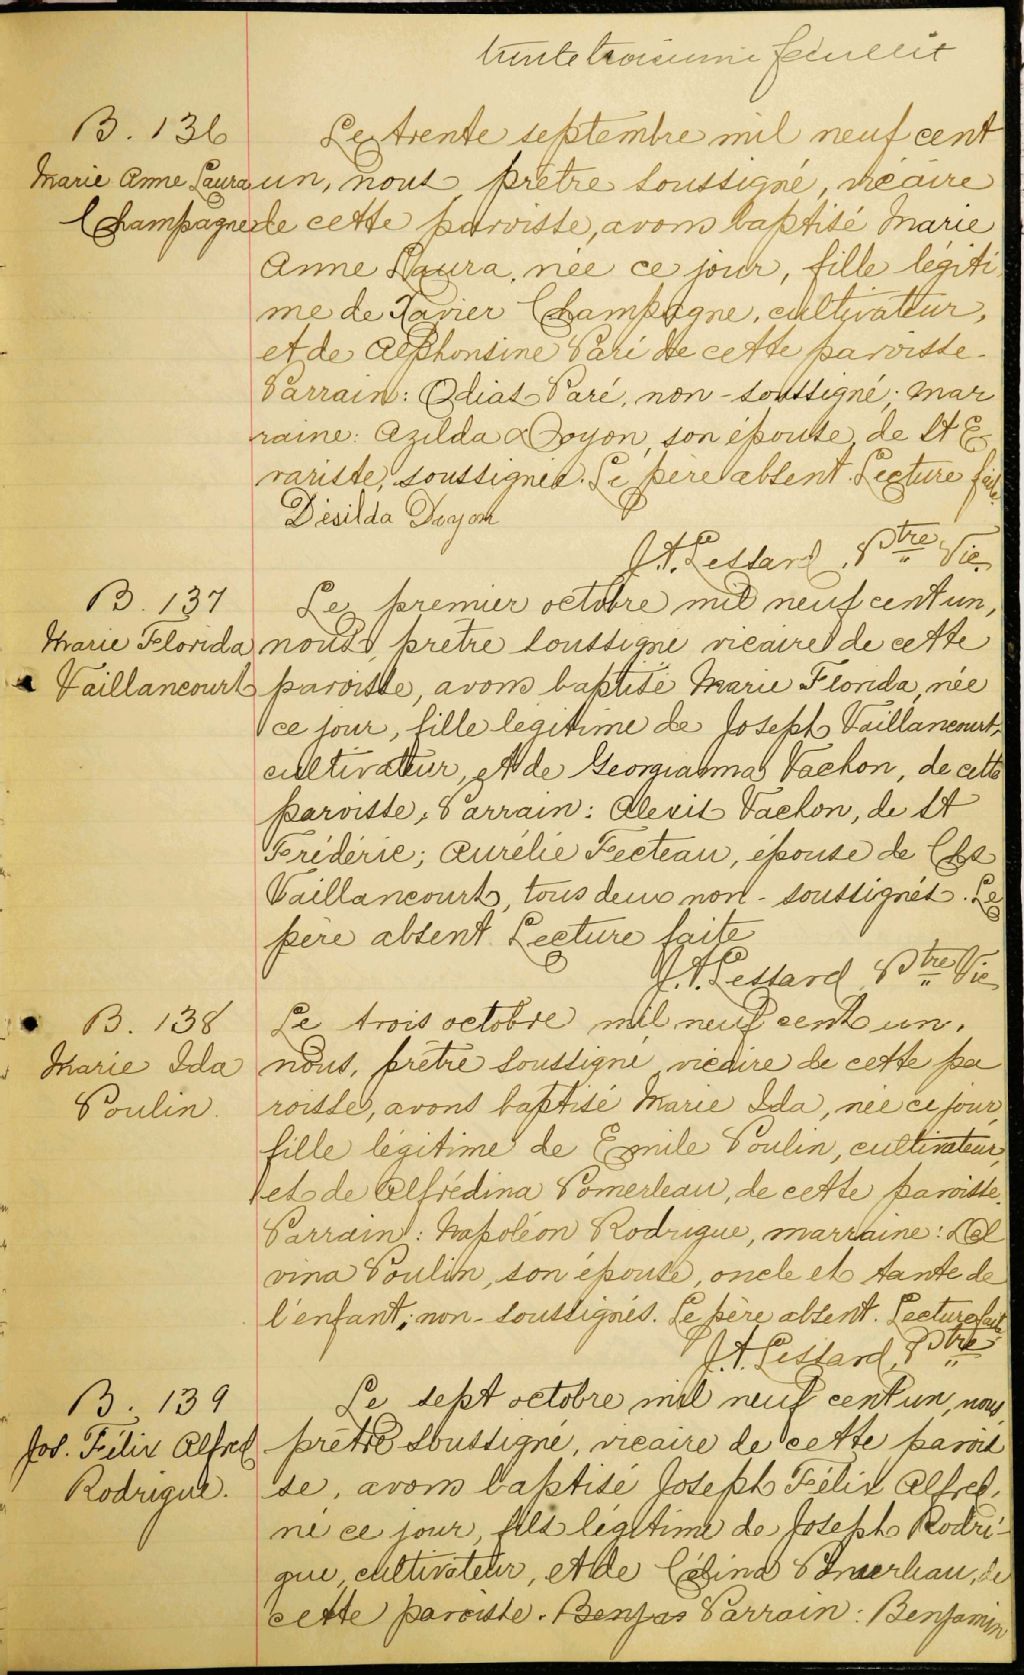 trente troisième feuillet
B. 136
Marie Anne Laura
Champagne
Le trente septembre mil neuf cent
un, nous prêtre soussigné, vicaire
de cette paroisse, avons baptisé Marie
Anne Laura, née ce jour, fille légiti
me de Xavier Champagne, cultivateur,
et de Alphonsine Paré de cette paroisse.
Parrain: Odias Paré, non-soussigné; mar
raine: Azilda Doyon, son épouse, de St E-
variste, soussignée. Le père absent. Lecture faite.
Désilda Doyon
J.A. Lessard, Ptre Vic.
B. 137
Marie Florida
Vaillancourt
Le premier octobre mil neuf cent un,
nous, prêtre soussigné vicaire de cette
paroisse, avons baptisé Marie Florida, née
ce jour, fille légitime de Joseph Vaillancourt,
cultivateur, et de Georgianna Vachon, de cette
paroisse; Parrain: Alexis Vachon, de St
Frédéric; Aurélie Fecteau, épouse de Chs
Vaillancourt, tous deux non-soussignés. Le
père absent. Lecture faite
J.A. Lessard, Ptre Vic
B. 138
Marie Ida
Poulin.
Le trois octobre mil neuf cent un,
nous, prêtre soussigné, vicaire de cette pa
roisse, avons baptisé Marie Ida, née ce jour,
fille légitime de Emile Poulin, cultivateur,
et de Alfrédina Pomerleau, de cette paroisse.
Parrain: Napoléon Rodrigue, marraine: Del
vina Poulin, son épouse, oncle et tante de
l'enfant; non-soussignés. Le père absent. Lecture faite.
J.A. Lessard, Ptre
B. 139
Jos. Félix Alfred
Rodrigue.
Le sept octobre mil neuf cent un, nous,
prêtre soussigné, vicaire de cette parois
se, avons baptisé Joseph Félix Alfred,
né ce jour, fils légitime de Joseph Rodri-
gue, cultivateur, et de Célina Pomerleau, de
cette paroisse. Benjas Parrain: Benjamin